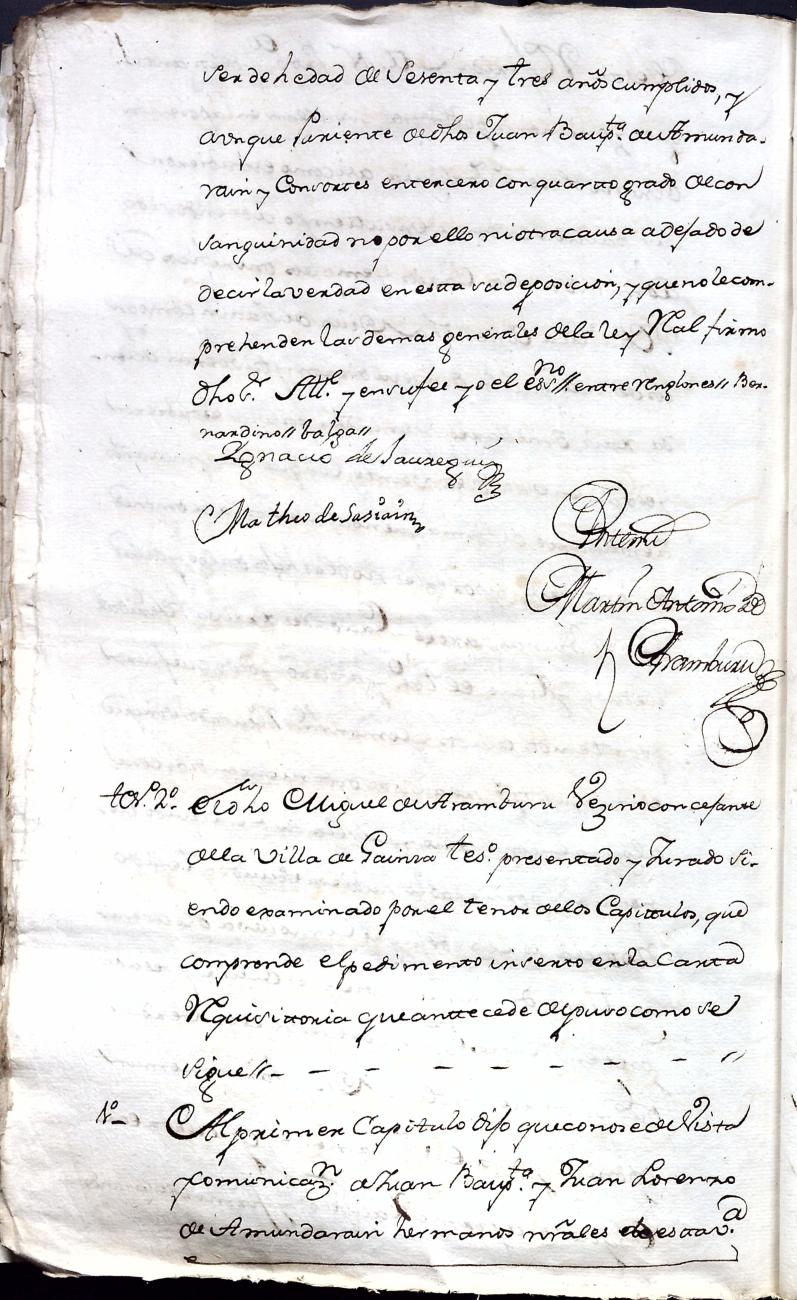 ser de hedad de Sesenta y tres años cumplidos, y
aunque Pariente de dhos Juan Baupta. de Amunda-
rain y Consortes en tercero con quartto grado de con
sanguinidad no por ello ni otra causa a dejado de
decir la verdad en estta su deposicion, y que no le com-
prehenden las demas generales de la ley Y al firmo
dho Sr. Alle. y en su fee yo el essno // entre renglones // Ber-
nardino // balga //
Ignacio de Jauregui
Matheo de Sasiain
Antemi
Martin Antonio de
Aramburu
tgo. 2º. El dho Miguel de Aramburu Vezino concejante
de la Villa de Gainza tesº. presentado y Jurado Si-
endo examinado por el tenor de los Capittulos, que
comprende el pedimento inserto en la Cartta
Requisittoria que anttecede depuso como se
sigue // - - - - - - - - //
1º - Al primer Capitulo dijo que conose de Vista
y comunicazn. a Juan Baupta. y Juan Lorenzo
de Amundarain hermanos nrãles de estta va.